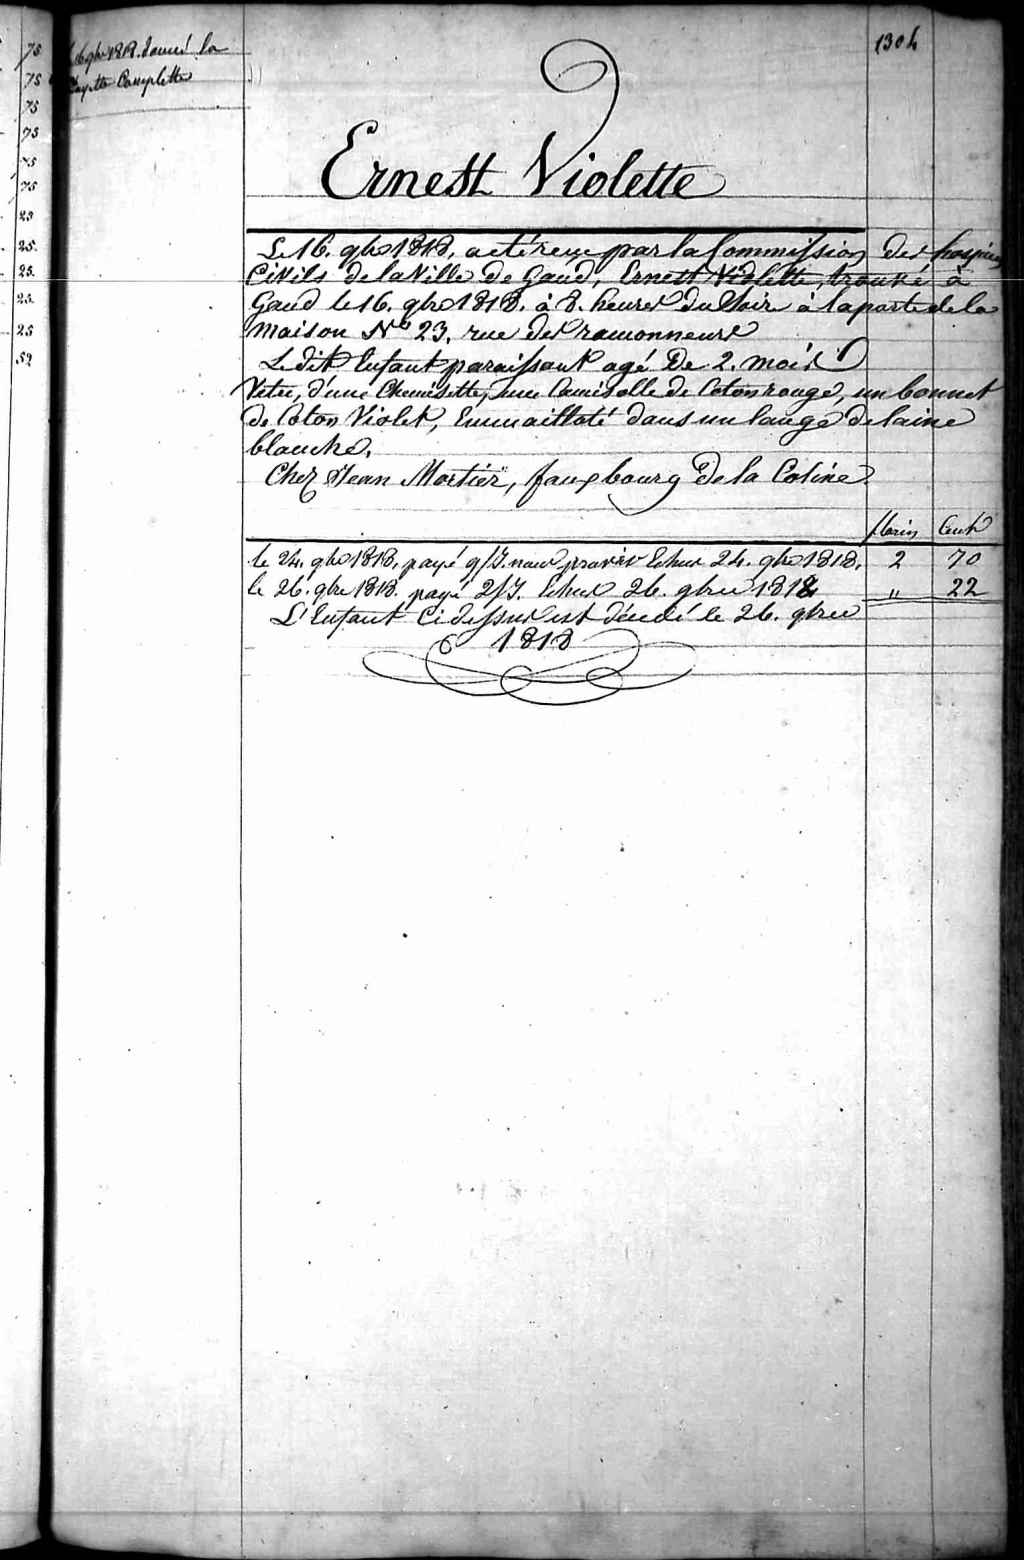 1304
16 9bre 1818. donné la
Layette Complette
Ernest Violette
Le 16. 9bre 1818, a été reçu par la Commission des hospices
Civils de la Ville de Gand, Ernest Violette, trouvé à
Gand le 16. 9bre 1818. à 8. heures du Soir à la porte de la
Maison N° 23, rue des ramonneurs
Le dit Enfant paraissant agé De 2. mois
Vetu, d'une Chemisette, une Camisolle de Coton rouge, un bonnet
de Coton Violet, Emmailloté dans un lange de laine
blanche,
Chez Jean Mortier, fauxbourg De la Coline
florin Cents
le 24. 9bre 1818. payé 9/J. Echus 24. 9bre 1818. 2 70
le 26. 9bre 1818. payé 2/J. Echus 26. 9bre 1818 " 22
L'Enfant Ci dessus est décédé le 26. 9bre
1818
75
75
75
75
75
75
25
25
25
25
25
52